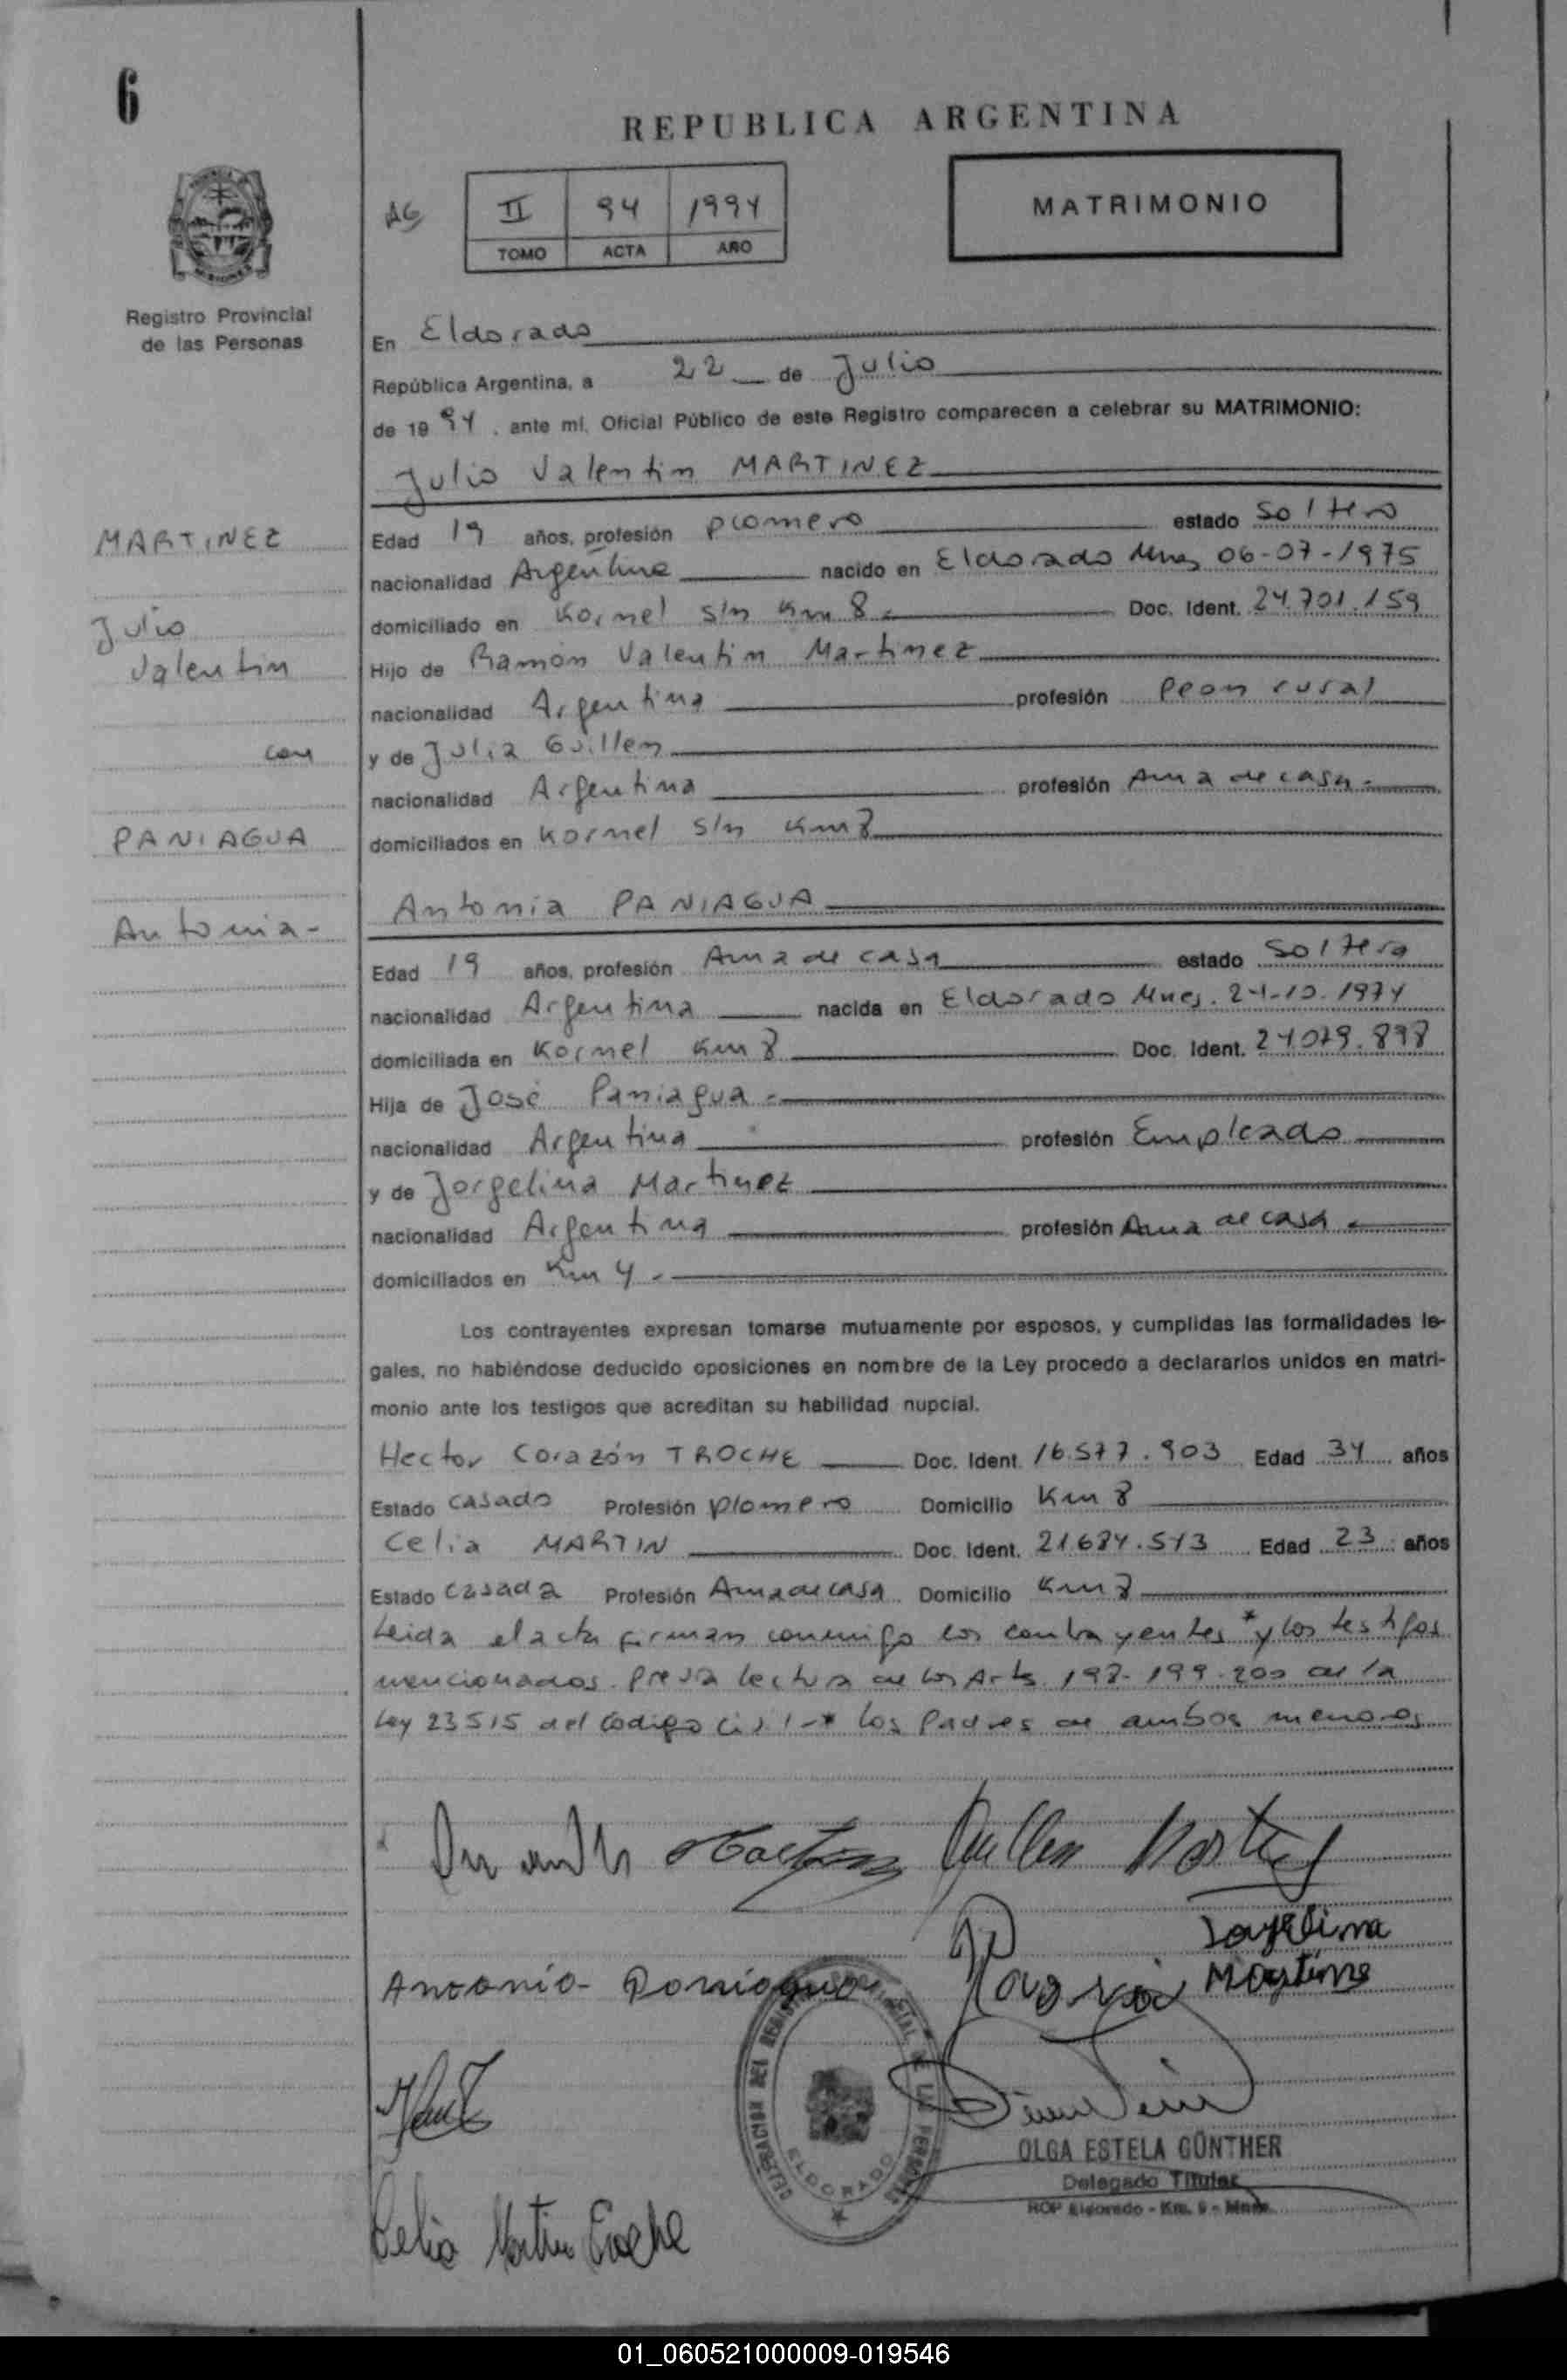 6
REPUBLICA ARGENTINA
AG
II 94 1994
TOMO ACTA AÑO
MATRIMONIO
Registro Provincial
de las Personas
En Eldorado
República Argentina, a 22 de Julio
de 1994, ante mí, Oficial Público de este Registro comparecen a celebrar su MATRIMONIO:
Julio Valentin MARTINEZ
MARTINEZ
Julio
Valentin
con
PANIAGUA
Antonia-
Edad 19 años, profesión plomero estado Soltero
nacionalidad Argentina nacido en Eldorado Mnes 06-07-1975
domiciliado en Kornel s/n Km 8 Doc. Ident. 24.701.159
Hijo de Ramón Valentin Martinez
nacionalidad Argentina profesión Peon rural
y de Julia Guillen
nacionalidad Argentina profesión Ama de casa
domiciliados en Kornel s/n Km 8
Antonia PANIAGUA
Edad 19 años, profesión Ama de casa estado Soltera
nacionalidad Argentina nacida en Eldorado Mnes. 24-10-1974
domiciliada en Kornel Km 8 Doc. Ident. 24.079.898
Hija de José Paniagua
nacionalidad Argentina profesión Empleado
y de Jorgelina Martinez
nacionalidad Argentina profesión Ama de casa
domiciliados en Km 4
Los contrayentes expresan tomarse mutuamente por esposos, y cumplidas las formalidades le-
gales, no habiéndose deducido oposiciones en nombre de la Ley procedo a declararlos unidos en matri-
monio ante los testigos que acreditan su habilidad nupcial.
Hector Corazón TROCHE Doc. Ident. 16.577.903 Edad 34 años
Estado casado Profesión plomero Domicilio Km 8
Celia MARTIN Doc. Ident. 21.684.513 Edad 23 años
Estado casada Profesión Ama de casa Domicilio Km 8
Leida el acta firman conmigo los contrayentes * y los testigos
mencionados. Previa lectura de los Arts. 198-199-200 de la
Ley 23515 del Codigo Civil-* los Padres de ambos menores
Guillen Martinez
Jorgelina
Antonia Paniagua
Martinez
Celia Martin Troche
ELDORADO
OLGA ESTELA GÜNTHER
Delegado Titular
RCP Eldorado - Km. 9 - Mnes.
01_060521000009-019546